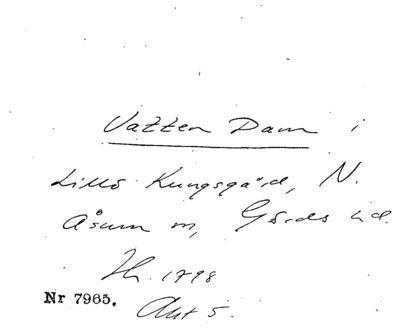 Vatten Dam i
Lillö Kungsgård, N.
Åsum m, Gärds hd.
Jh. 1798
Nr 7965.
Akt 5.